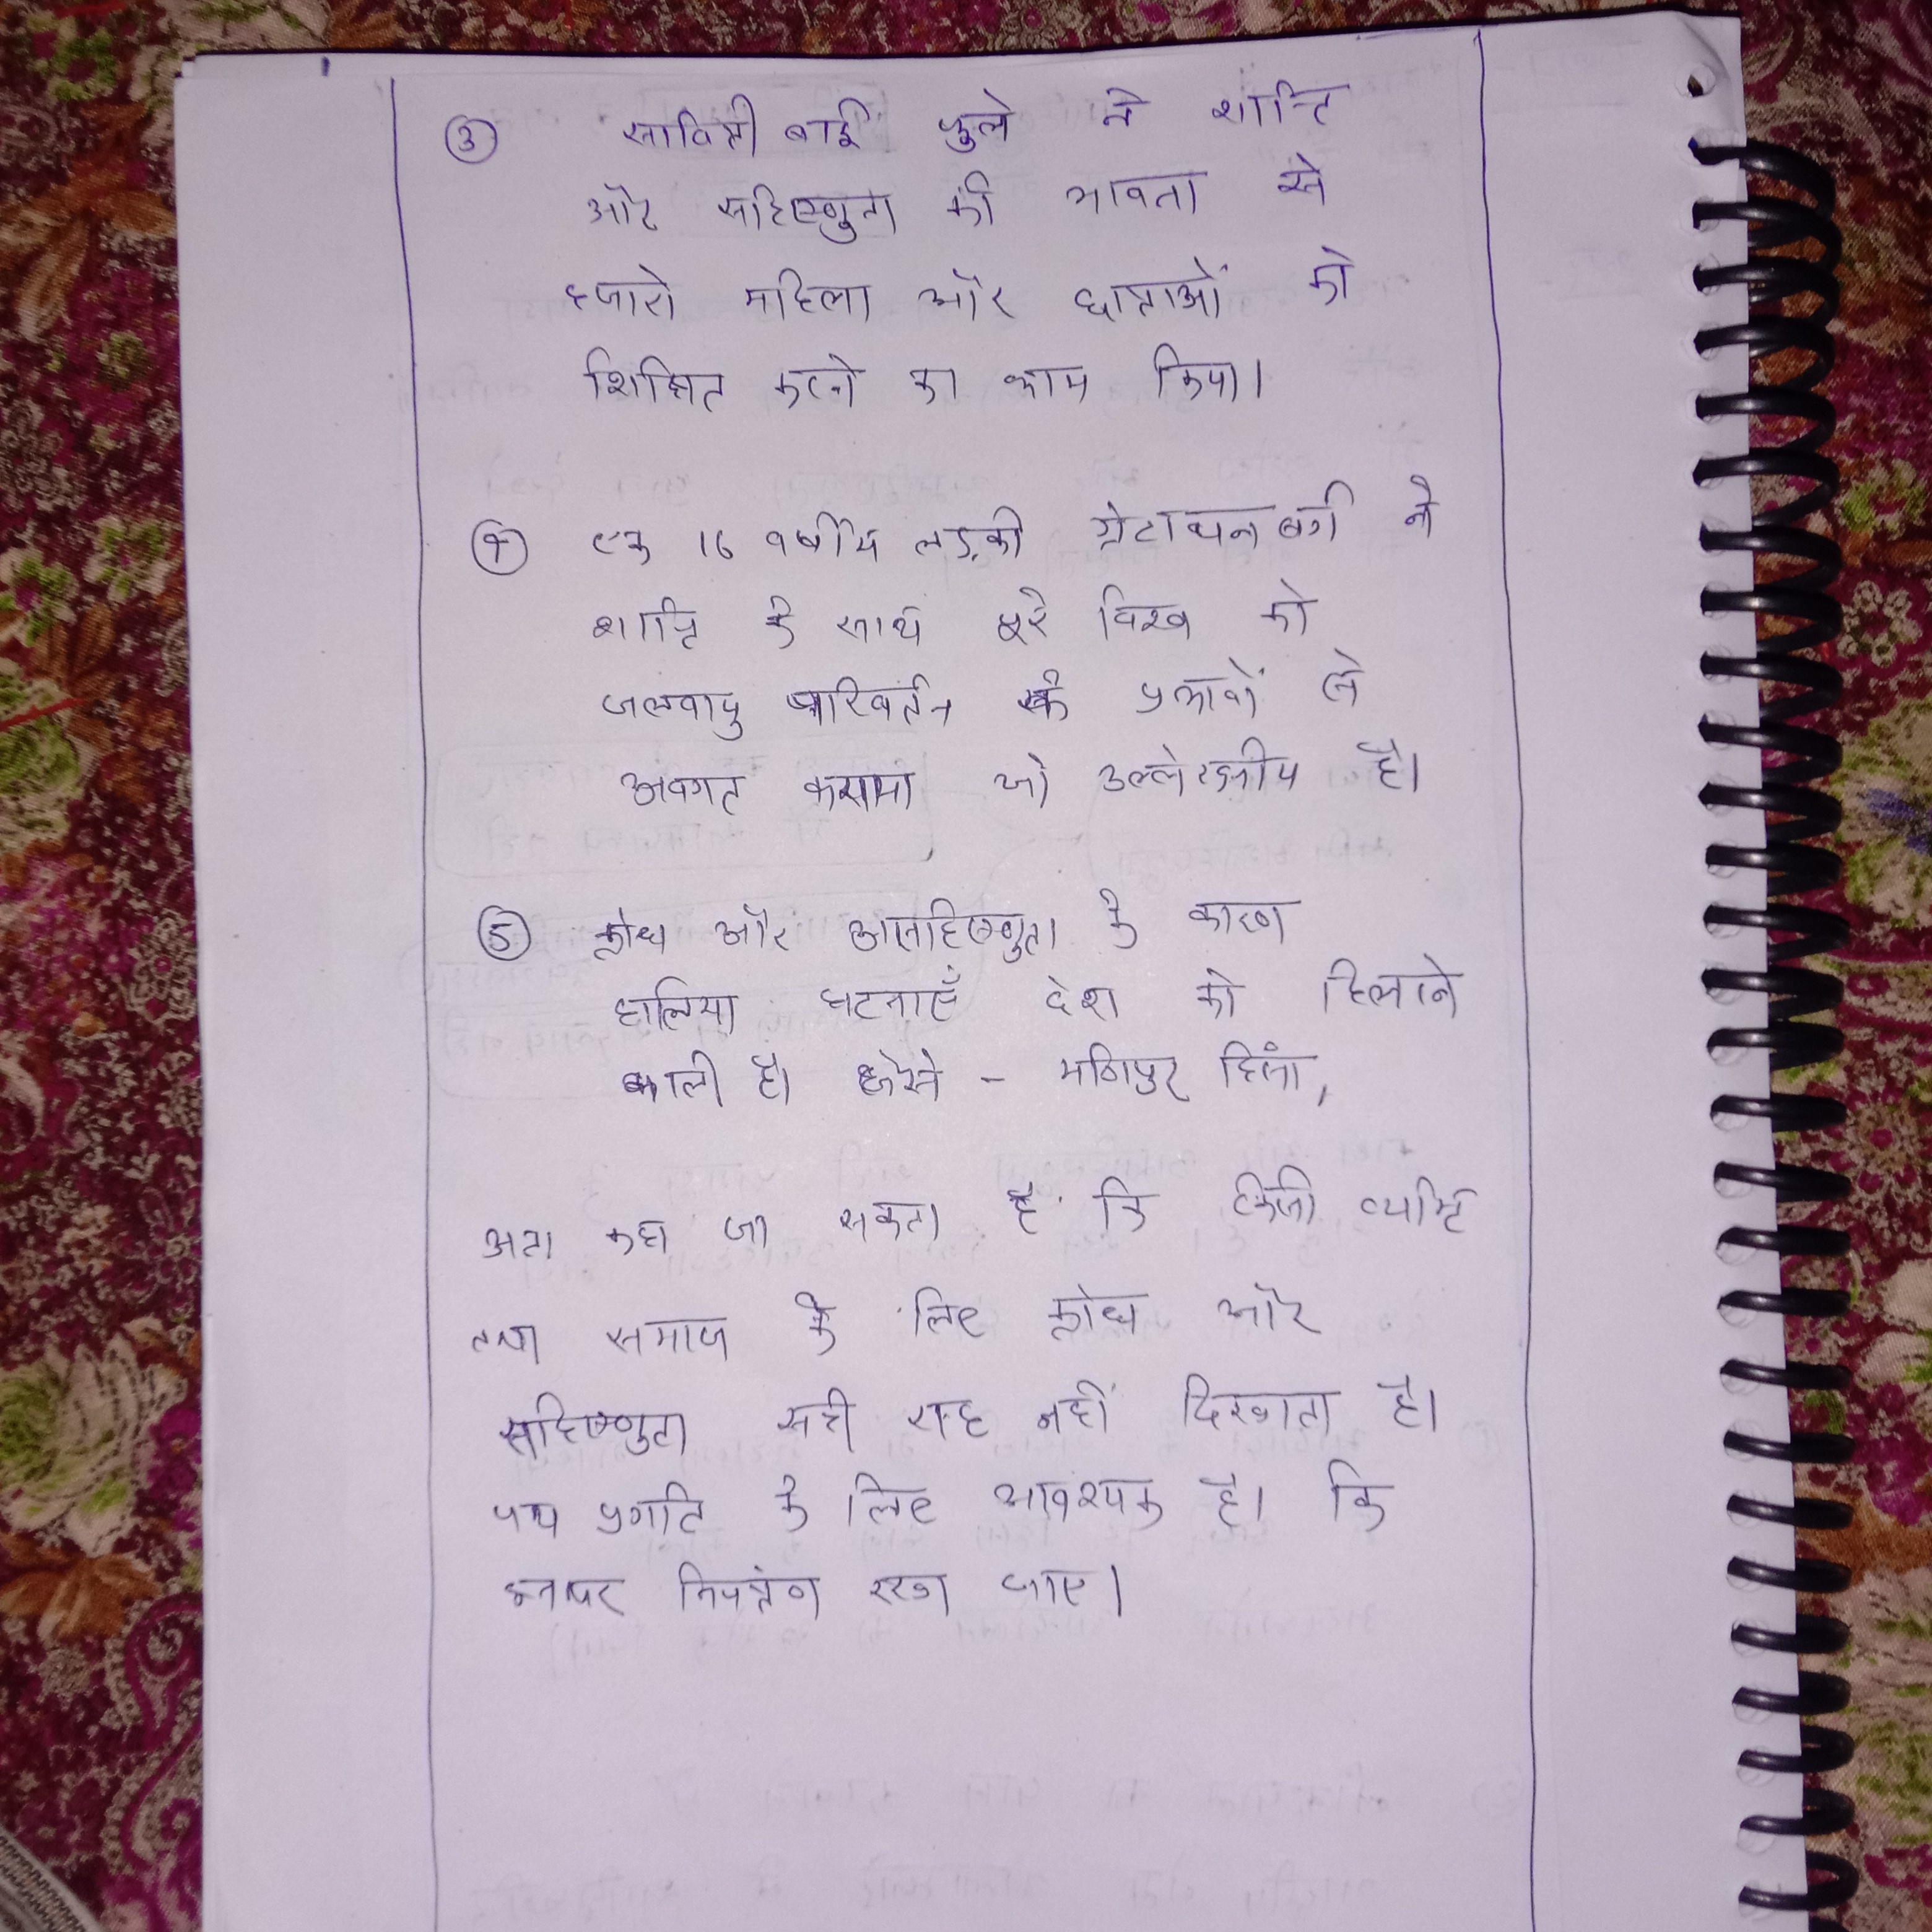 ③ सावित्री बाई फुले ने शान्ति
और सहिष्णुता की भावना से
हजारो महिला और छात्राओं को
शिक्षित करने का काम किया।
④ एक 16 वर्षीय लड़की ग्रेटाथनबर्ग ने
शान्ति के साथ पूरे विश्व को
जलवायु परिवर्तन के प्रभावों से
अवगत कराया जो उल्लेखनीय है।
⑤ क्रोध और असहिष्णुता के कारण
हालिया घटनाएँ देश को हिलाने
वाली है। जैसे - मणिपुर हिंसा,
अतः कहा जा सकता है कि किसी व्यक्ति
तथा समाज के लिए क्रोध और
सहिष्णुता सही राह नहीं दिखाता है।
पथ प्रगति के लिए आवश्यक है। कि
इनपर नियंत्रण रखा जाए।